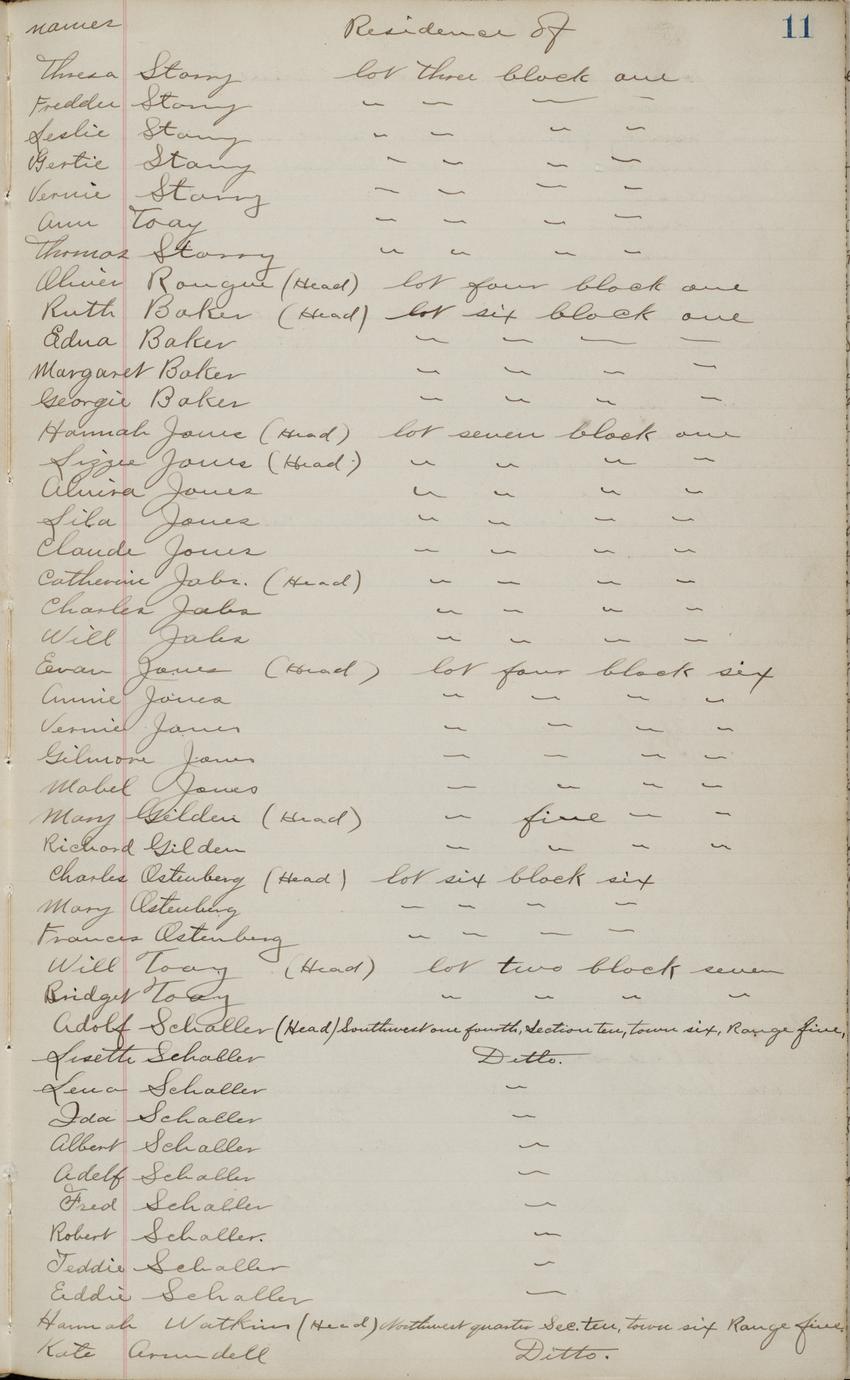 names Residence of 11
Thresa Starry lot three block one
Freddie Starry " " " "
Leslie Starry " " " "
Gertie Starry " " " "
Vernie Starry " " " "
Ann Toay " " " "
Thomas Starry " " " "
Oliver (Head) lot four block one
Ruth Baker (Head) lot six block one
Edna Baker " " " "
Margaret Baker " " " "
Georgie Baker " " " "
Hannah Jones (Head) lot seven block one
Lizzie Jones (Head) " " " "
Almira Jones " " " "
Lila Jones " " " "
Claude Jones " " " "
Catherine Jabs. (Head) " " " "
Charles Jabs " " " "
Will Jabs " " " "
Evan Jones (Head) lot four block six
Annie Jones " " " "
Vernie Jones " " " "
Gilmore Jones " " " "
Mabel Jones " " " "
Mary Gilden (Head) " five " "
Richard Gilden " " " "
Charles Ostenberg (Head) lot six block six
Mary Ostenberg " " " "
Frances Ostenberg " " " "
Will Toay (Head) lot two block seven
Bridget Toay " " " "
Adolf Schaller (Head) Southwest one fourth, Section ten, town six, Range five,
Lisette Schaller Ditto.
Lena Schaller "
Ida Schaller "
Albert Schaller "
Adelf Schaller "
Fred Schaller "
Robert Schaller. "
Teddie Schaller "
Eddie Schaller "
Hannah Watkins (Head) Northwest quarter Sec. ten, town six Range five,
Kate Arundell Ditto.